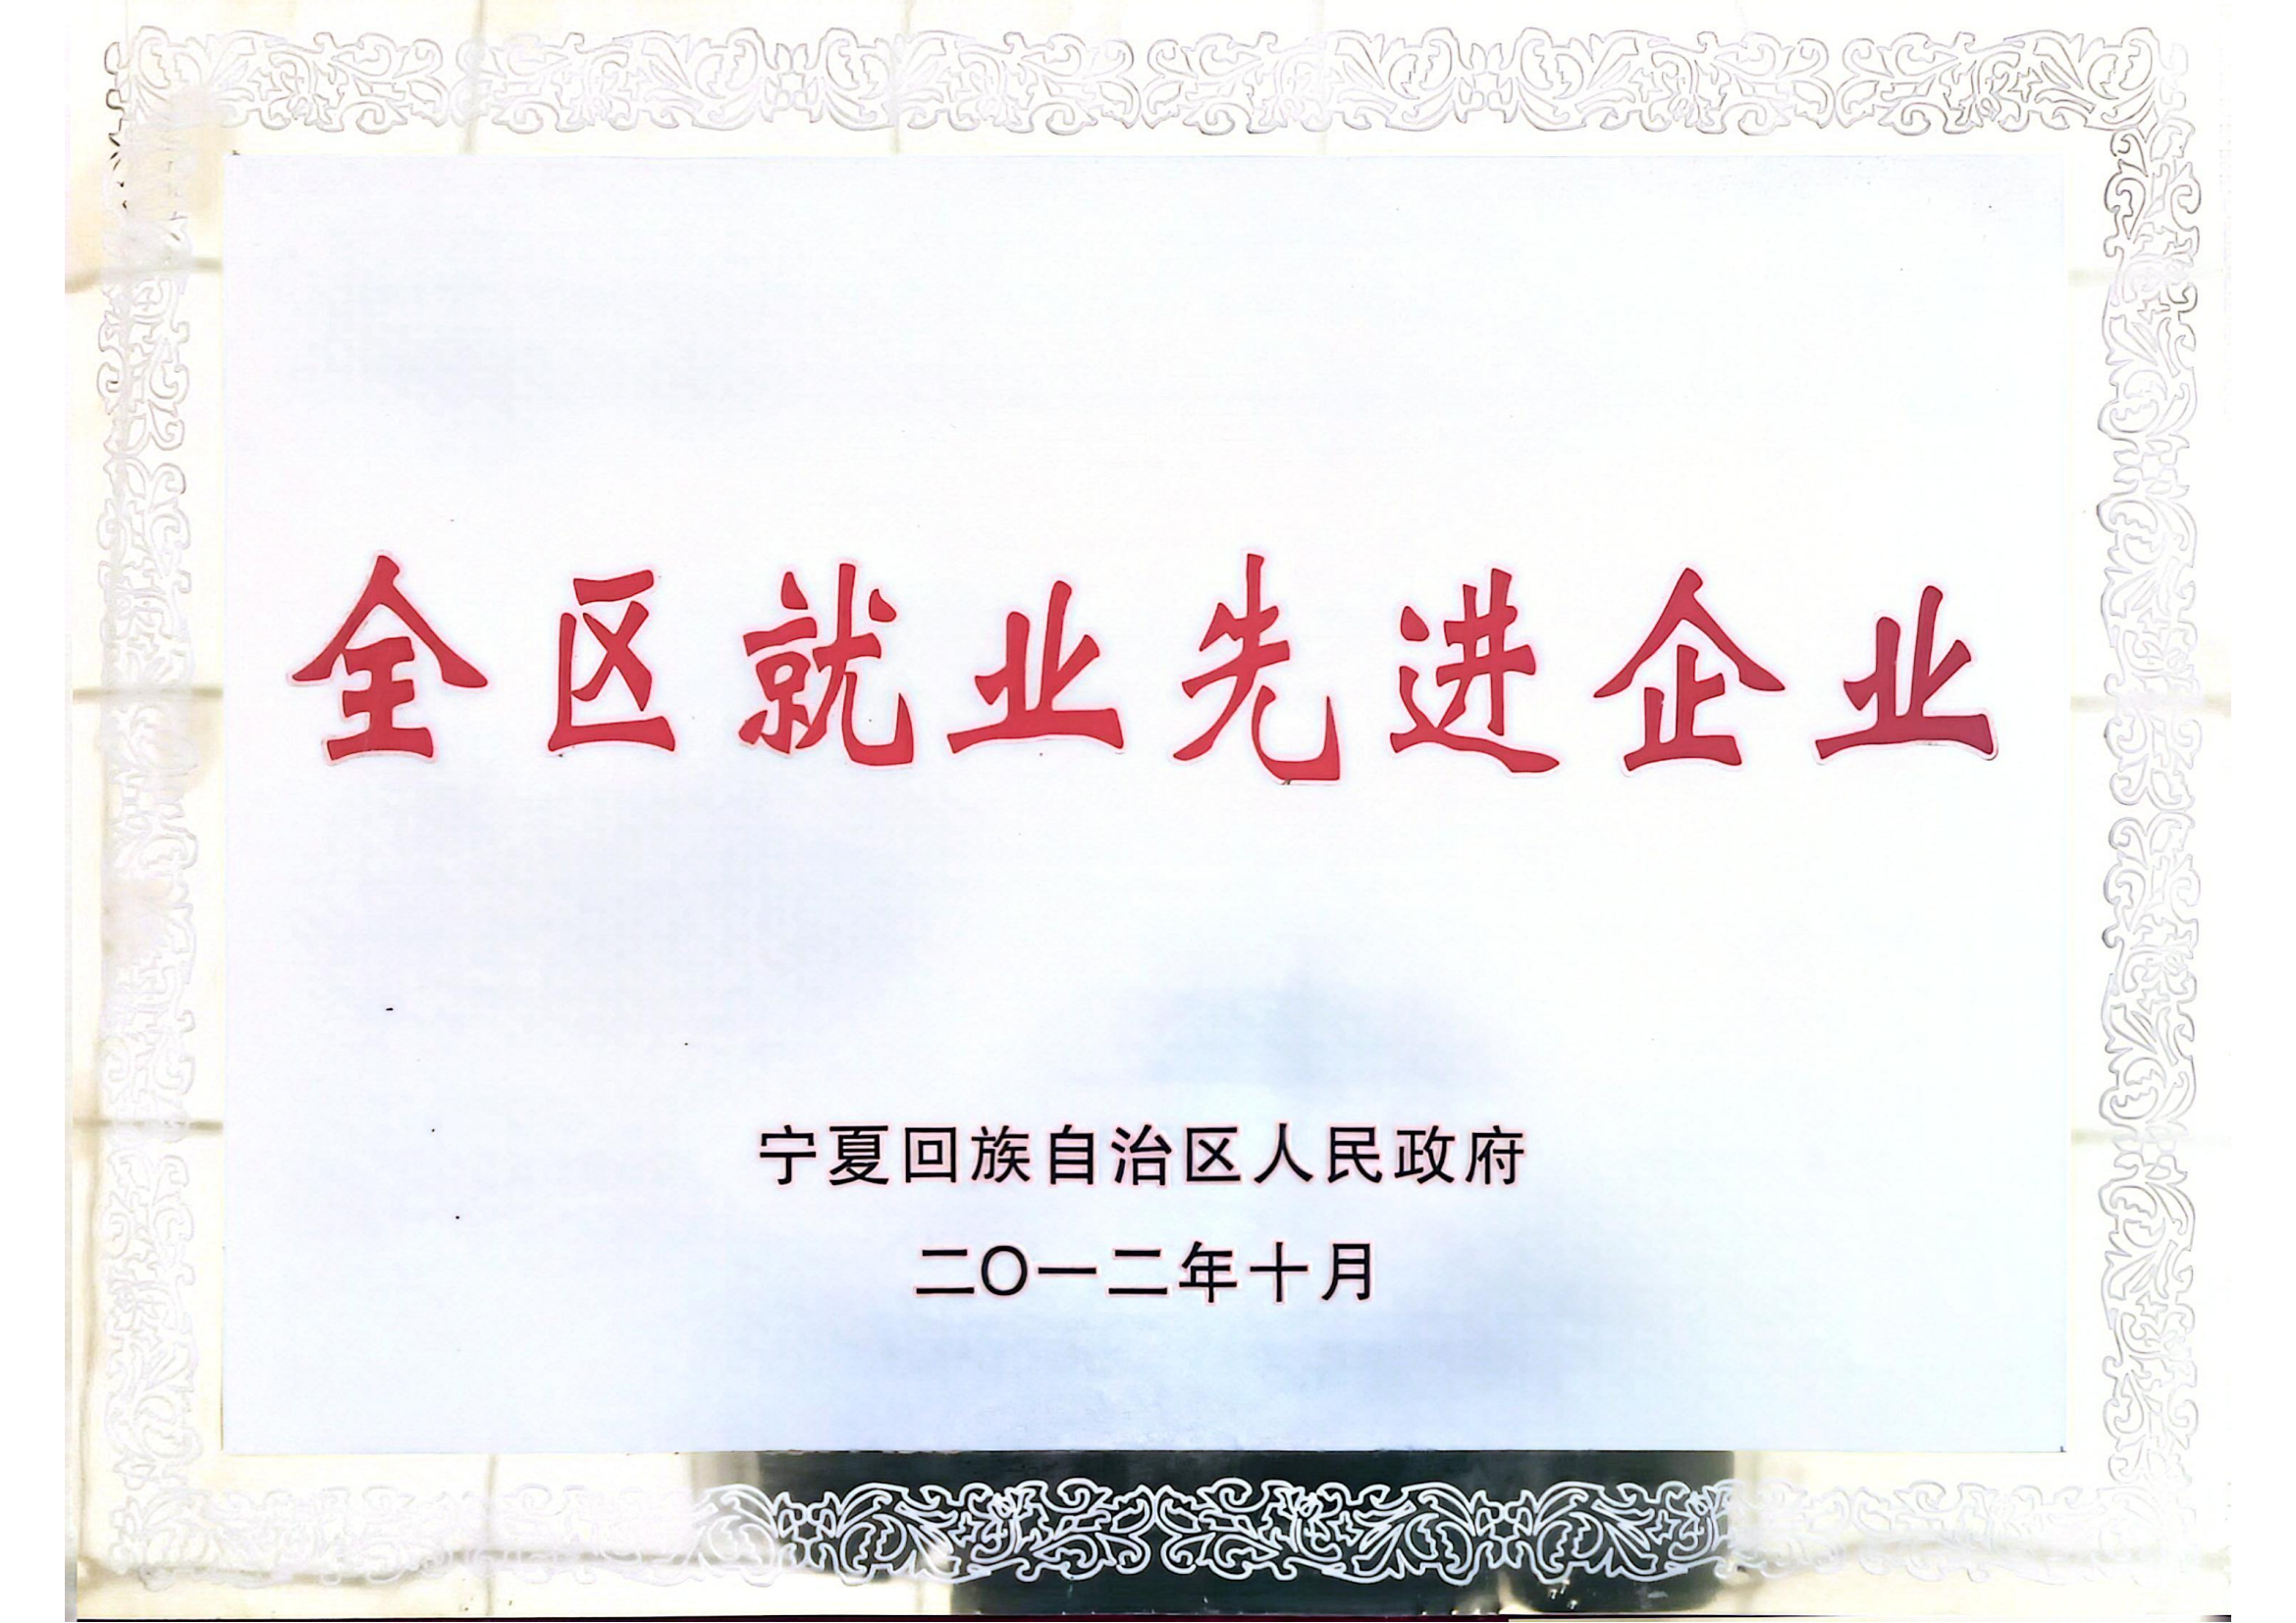 全区就业先进企业
宁夏回族自治区人民政府
二〇一二年十月